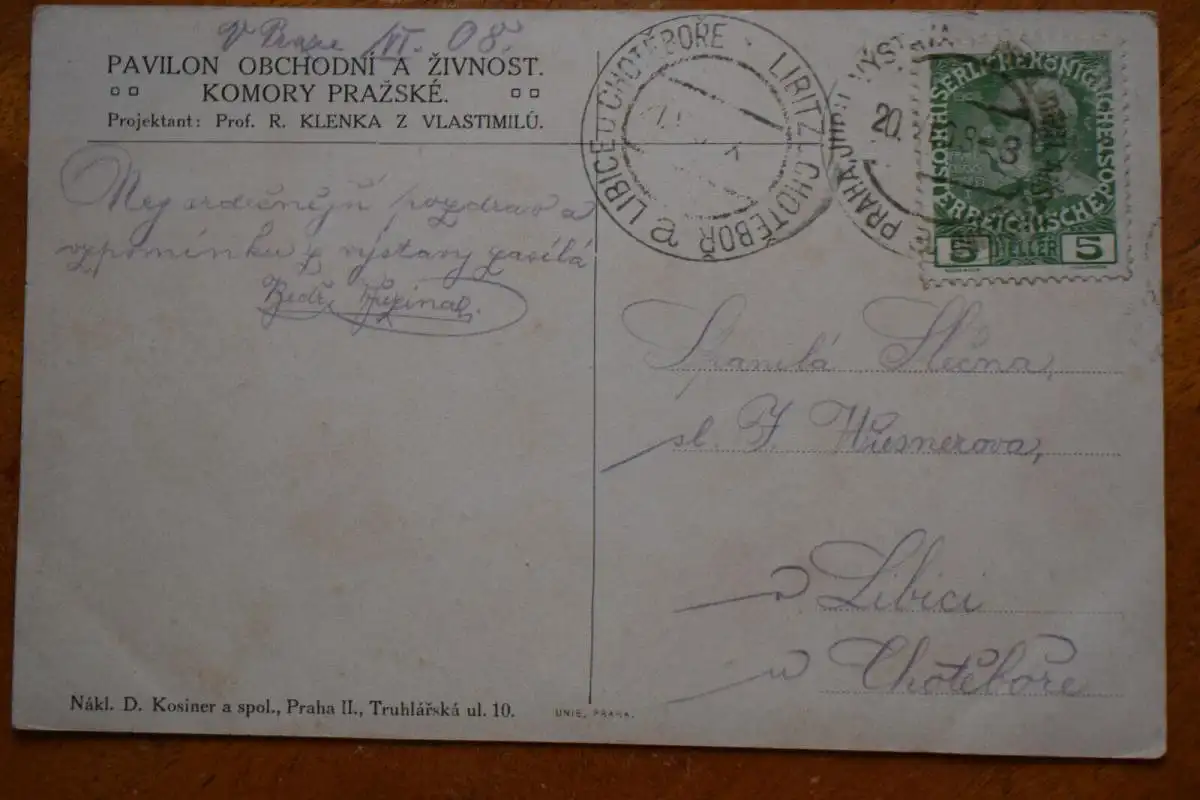 V Praze /VI. 08.
PAVILON OBCHODNÍ A ŽIVNOST.
KOMORY PRAŽSKÉ.
Projektant: Prof. R. KLENKA Z VLASTIMILŮ.
Nejsrdečnější pozdrav a
vzpomínku z výstavy zasílá
Bedř.
LIBICE U CHOTĚBOŘE
LIBITZ-CHOTĚBOŘ
PRAHA, JUB. VÝSTAVA
20.
5 HELLER 5
Spanilá Slečna,
sl. F. Wiesnerova,
v Libici
u Chotěboře
Nákl. D. Kosiner a spol., Praha II., Truhlářská ul. 10.
UNIE, PRAHA.